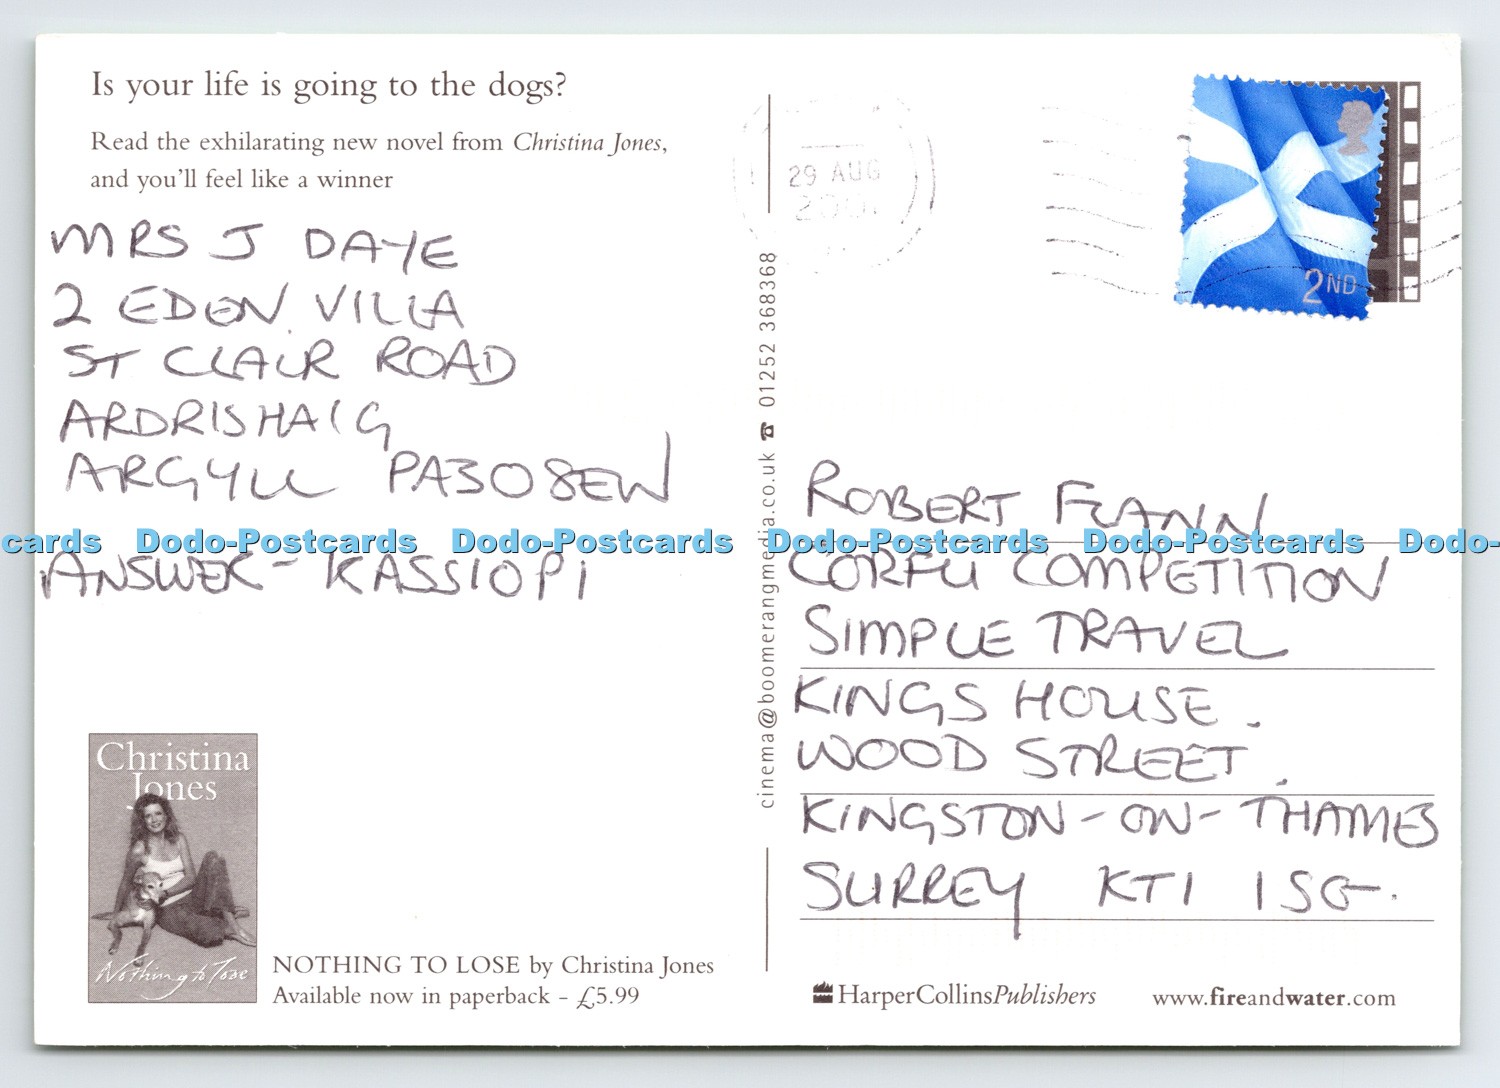 Is your life is going to the dogs?
Read the exhilarating new novel from Christina Jones,
and you'll feel like a winner
MRS J DAYE
2 EDEN VILLA
ST CLAIR ROAD
ARDRISHAIG
ARGYLL PA308EW
ANSWER - KASSIOPI
Christina
Jones
Nothing to Lose
NOTHING TO LOSE by Christina Jones
Available now in paperback - £5.99
cinema@boomerangmedia.co.uk ☎ 01252 368368
29 AUG
2ND
ROBERT FLANN
CORFU COMPETITION
SIMPLE TRAVEL
KINGS HOUSE.
WOOD STREET.
KINGSTON-ON-THAMES
SURREY KT1 1SG.
HarperCollinsPublishers
www.fireandwater.com
cards Dodo-Postcards Dodo-Postcards Dodo-Postcards Dodo-Postcards Dodo-